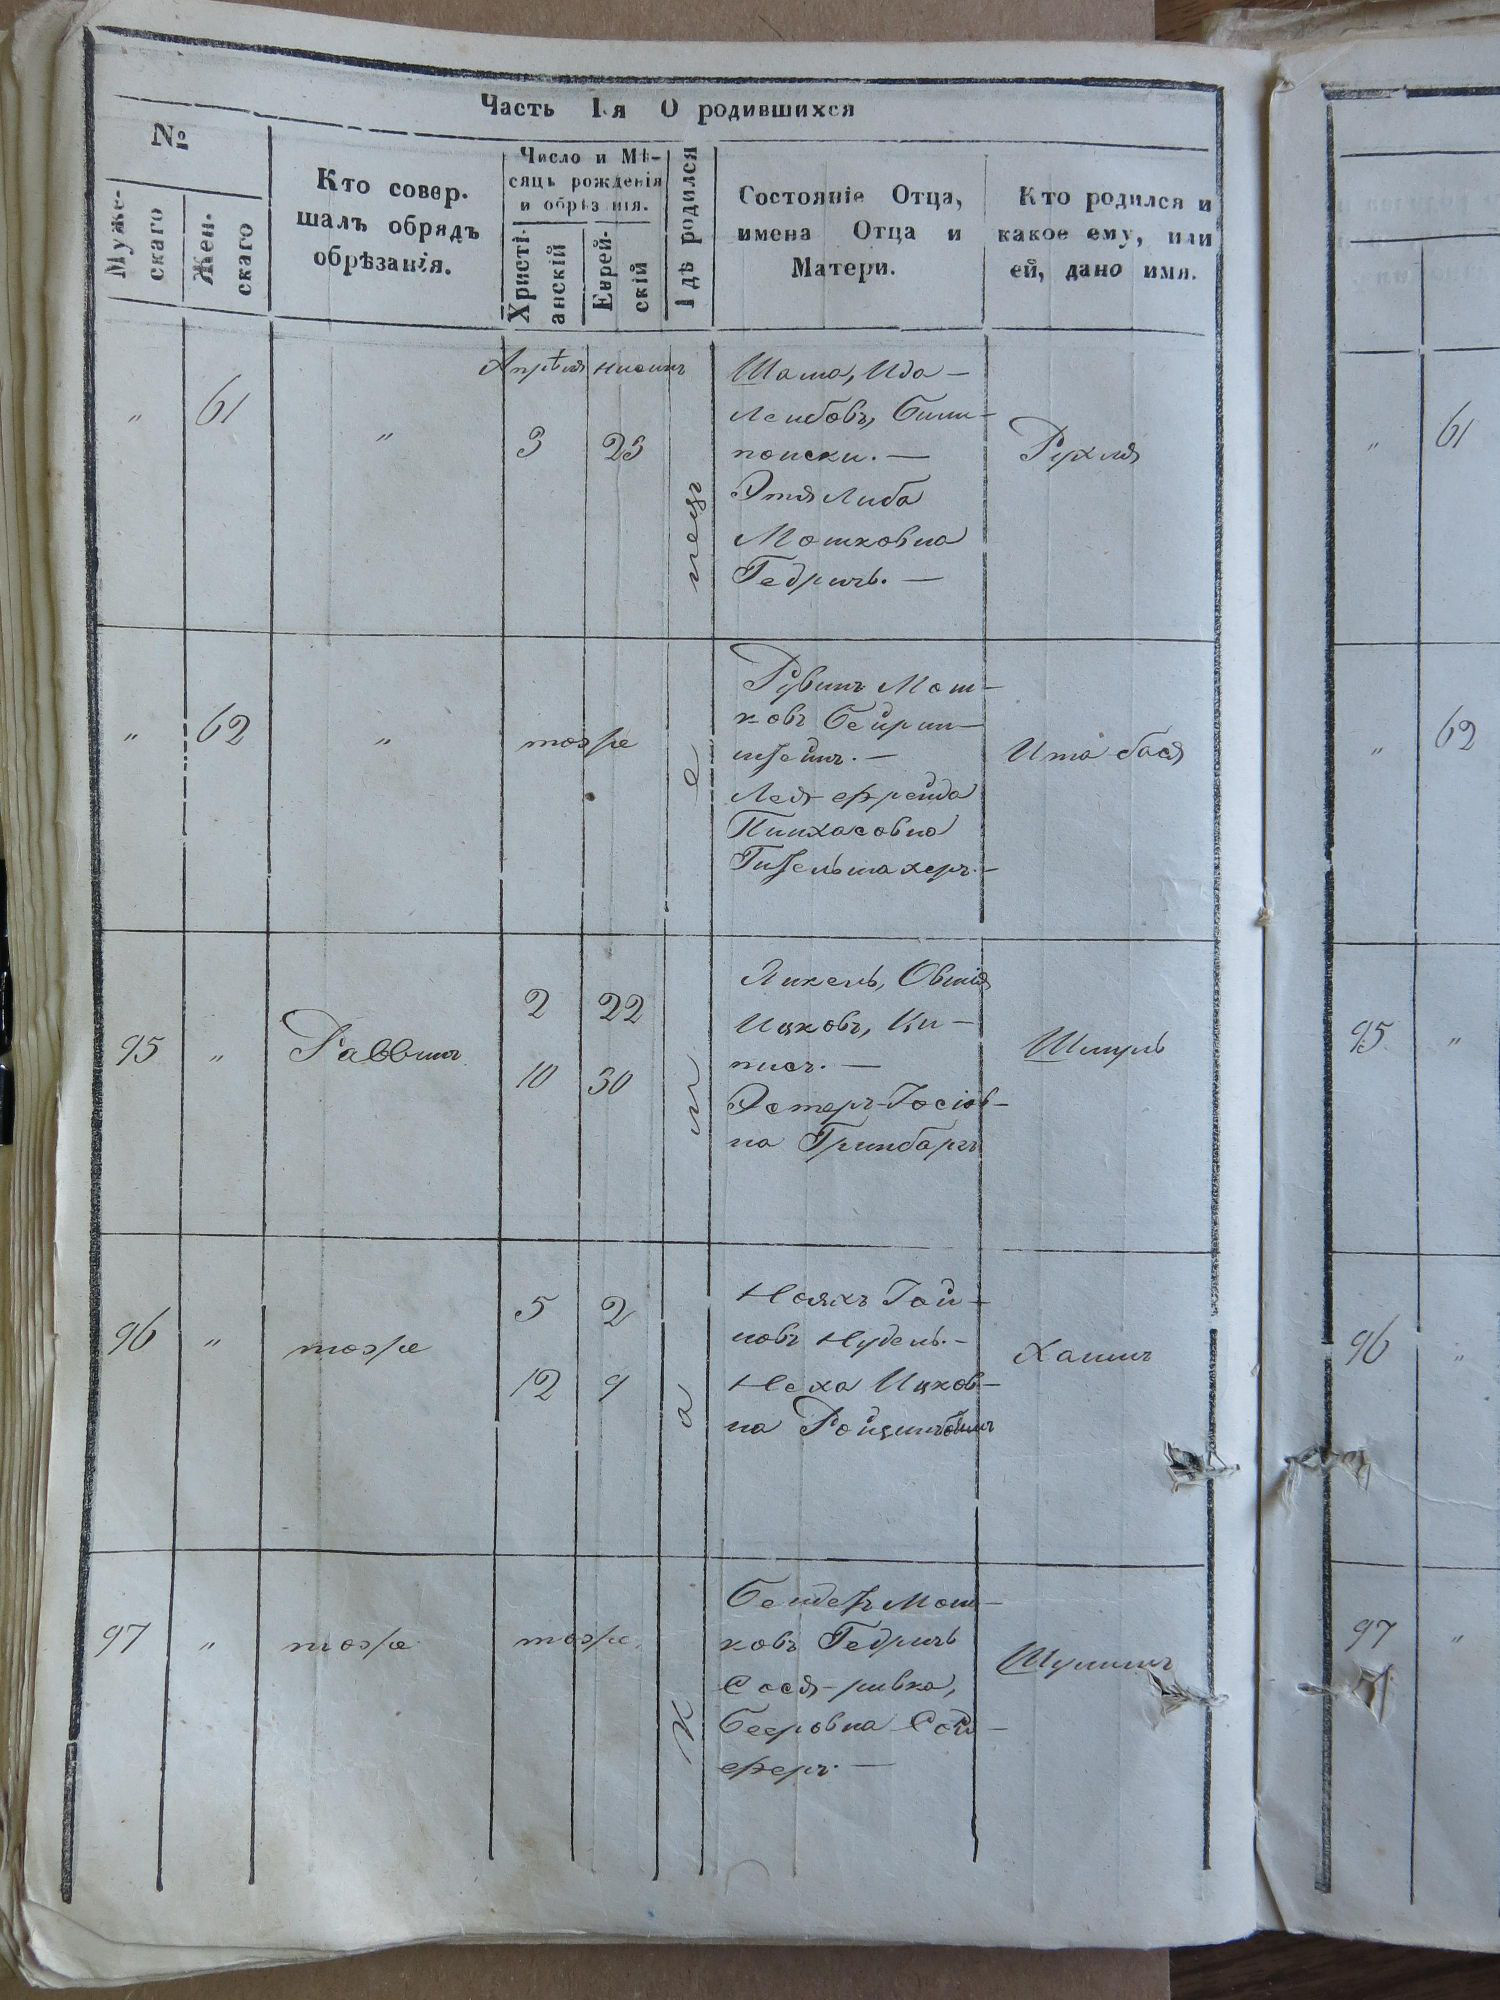 Часть I-я О родившихся
№
Муже-
скаго
Жен-
скаго
Кто совер-
шалъ обрядъ
обрѣзанія.
Число и Мѣ-
сяцъ рожденія
и обрѣзанія.
Христі-
анскій
Еврей-
скій
Гдѣ родился
Состояніе Отца,
имена Отца и
Матери.
Кто родился и
какое ему, или
ей, дано имя.
Апрѣля нисинъ
" 61 " 3 23
Шама, Ида-
Лейбовъ,
поиски. —
Этля Либа
Мошковна
Гедричъ. —
Рухля
" 62 " тоже
Рувинъ Мош-
ковъ Бейрин-
штейнъ. —
Лея фрейда
Пинхасовна
Гительмахеръ. —
Ита Бася
95 " Раввинъ
2 22
10 30
Янкель, Овшія
Ицковъ, Ки-
писъ. —
Эстеръ-Іосіов-
на Гринбаргъ
Шмуль
96 " тоже
5 2
12 9
Нояхъ Гой-
новъ Нудель. —
Неха Ицков-
на
Хаимъ
97 " тоже тоже
Бендетъ Мош-
ковъ Гедричъ
Сося-ривка,
Бееровна Сой-
феръ. —
Шулимъ
Каменецъ
61
" 62
95 "
96 "
97 "